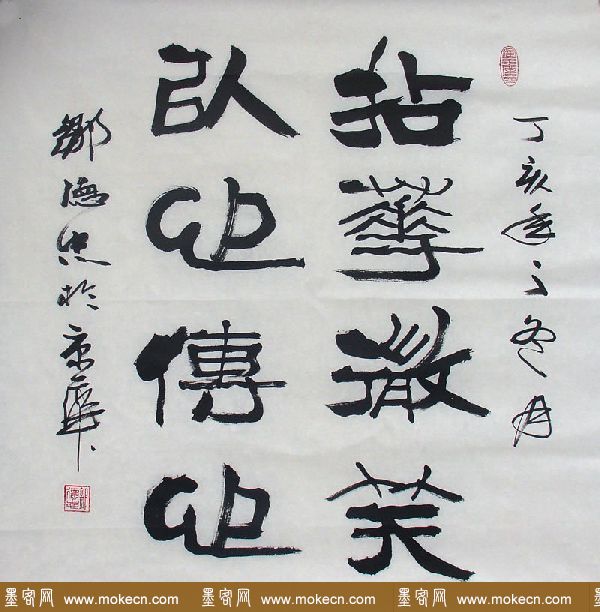 丁亥年之冬月
拈華微笑
以心傳心
鄒德忠於京華
墨客网 www.mokecn.com 墨客网 www.mokecn.com 墨客网 www.mokecn.com 墨客网 www.m